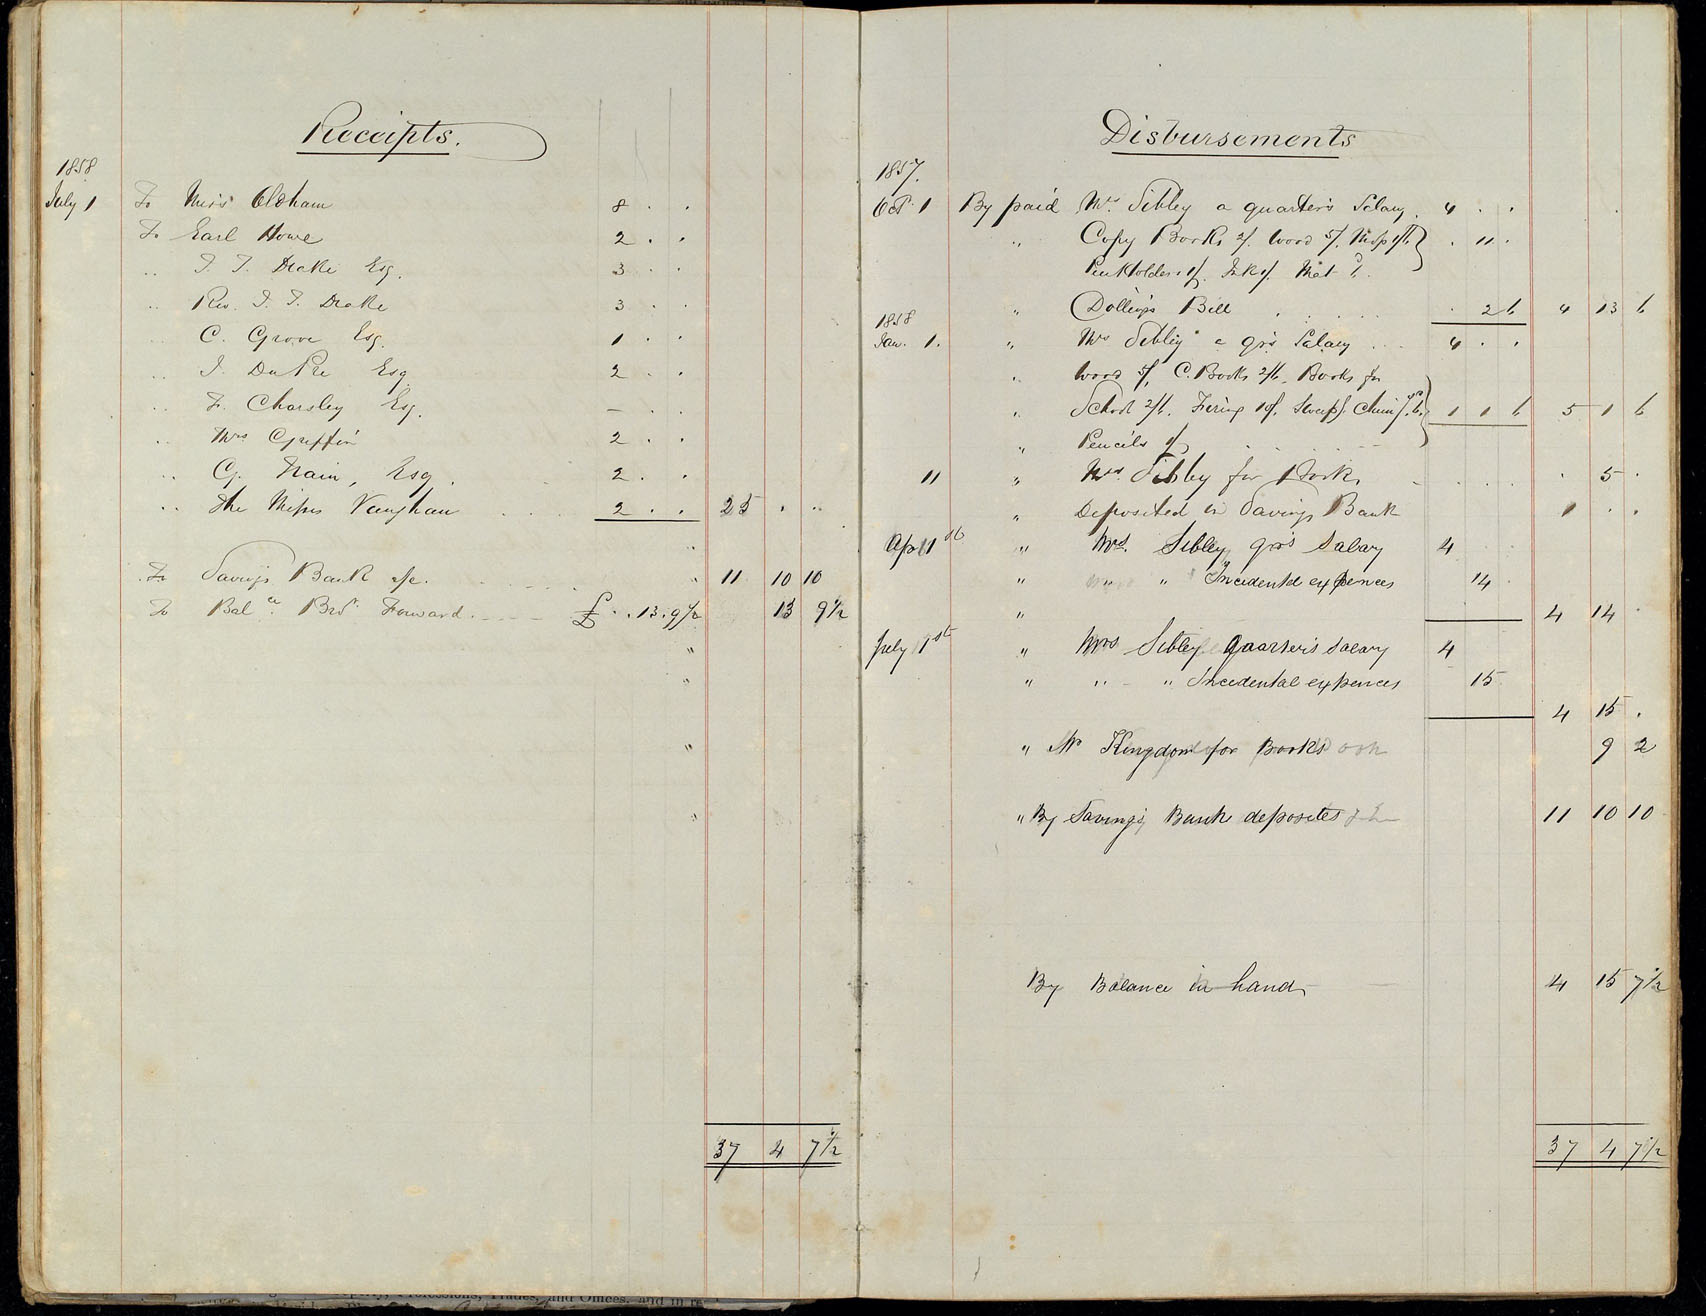 Receipts.
1858
July 1 To Miss Oldham 8 . .
To Earl Howe 2 . .
" T. T. Drake Esq. 3 . .
" Rev. J. T. Drake 3 . .
" C. Grove Esq. 1 . .
" J. DuPre Esq 2 . .
" F. Charsley Esq. – . .
" Mrs Griffin 2 . .
" G. Nain, Esq. 2 . .
" The Misses Vaughan 2 . . 25 . .
To Savings Bank a/c. " 11 10 10
To Balce. Brot. Forward. £ . . 13 . 9 1/2 13 9 1/2
37 4 7 1/2
Disbursements
1857.
Oct. 1 By paid Mrs. Sibley a quarter's Salary. 4 . .
" Copy Books 2/. Wood 5/. . 11 .
Penholders 1/. Ink 1/. Mat
" Bill . 2 6 4 13 6
1858
Jan. 1. " Mrs Sibley a qr's Salary 4 . .
" Wood 5/, C. Books 2/6, Books for
" School 2/6. Firing 10/. 1 1 6 5 1 6
" Pencils 1/
11 " Mrs. Sibley for Books . 5 .
" Deposited in Savings Bank 1 . .
Apl 1st " Mrs. Sibley, qr's Salary 4
" " " Incidental expences 14
" 4 14 .
July 1st " Mrs Sibley Quarter's Salary 4
" " – " Incedental expences 15
4 15 .
" Mr Kingdom for Books 9 2
" By Savings Bank deposites 11 10 10
By Balance in hand, 4 15 7 1/2
37 4 7 1/2